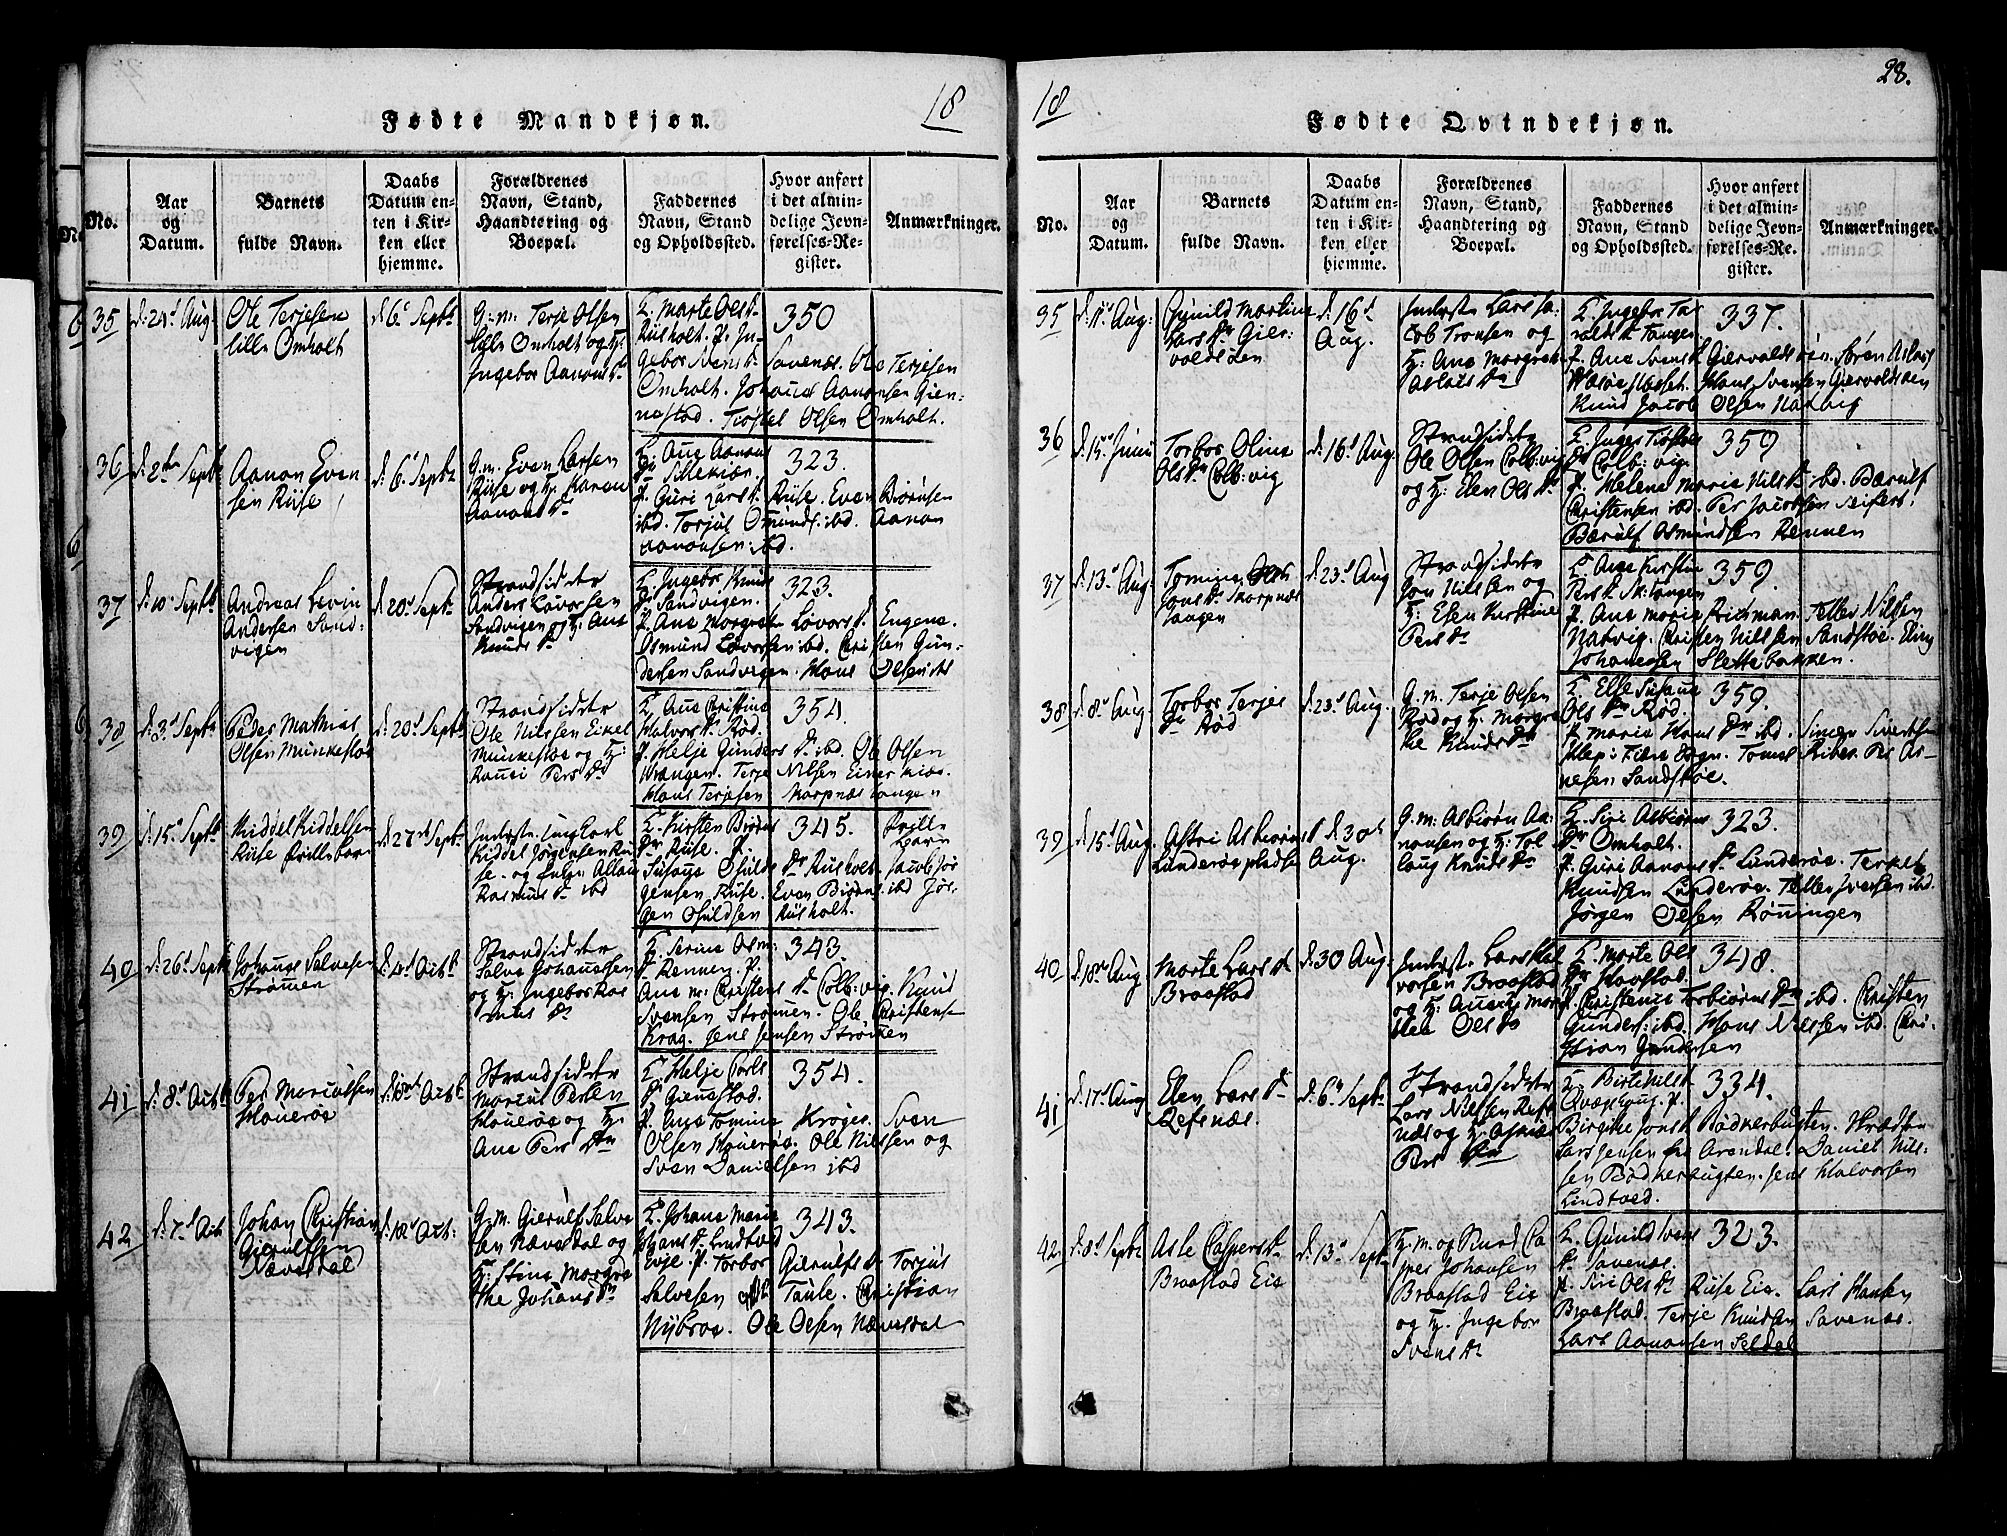 18
Fødte Mandkjøn.
No.
Aar og Datum.
Barnets fulde Navn.
Daabs Datum enten i Kirken eller hjemme.
Forældrenes Navn, Stand, Haandtering og Boepæl.
Faddernes Navn, Stand og Opholdssted.
Hvor anført i det almindelige Jevnførelses-Register.
Anmærkninger.
35
d. 24d Aug
Ole Terjesen
lille Omholt
d 6d Septbr
G. m. Terje Olsen
lille Omholt og H:
Ingebor Aanons Dr
Marte Ols D.
Riisholt. P. In-
gebor Svens D. Savenæs. Ole Terjesen
Omholt. Johans Aanonsen Gien-
nestad. Tiøstel Olsen Omholt.
350
36
Aanon Even
sen Riise
d. 6d Septbr
G. m. Even Larsen
Riise og H. Karen
Aanons Dr
Ane Aanons
P. Guri Lars D. Riise. Even Biørnsen
ibd. Torjus Osmunds: ibd. Aanon
Aanonsen ibd.
323.
37
d. 10d Septbr
Andreas Levin
Andersen Sand-
vigen
d. 20d Septbr
Strandsidder
Anders Lavorsen
Sandvigen og H. Ane
Knuds Dr
Ingebor Knuds
Dr Sandvigen.
P. Ane Margrete Lovors D. Engene.
Osmund Lovorsen ibd. Christen Gun-
dersen Sandvigen. Hans Olsen ibd
323.
38
d. 3d Septbr
Peder Mathias
Olsen Munkestøe
d. 20d Septbr
Strandsidder
Ole Nilsen Eikel
Munkestøe og H:
Pers Dr
Ane Christine
Halvors D. Rød.
P. Helje Gunders D. ibd. Ole Olsen
Vrangen. Terje Nilsen Einerkiær
Hans Terjesen Skarpnæstangen
354.
39
d. 15d Septbr
Kiddel Kiddelsen
Riise
d. 27d Septbr
Kiddel Jørgensen Rii-
se. og
Rasmus D. ibd
Kirsten Biørns
Dr Riise. P.
Riisholt. Jacob Jør
gensen Riise. Even Biørns. ibd Jør-
gen Osuldsen Riisholt.
345.
40
d. 26d Septbr
Johans Salvesen
Strømen
d. 4d Octbr
Strandsidder
Salve Johannesen
og H: Ingebor Ras
mus Dr
Serine Osm:
D. Rennen. P.
Ane M. Christens D. Colb:vig. Knud
Svensen Strømen. Ole Christense
Krag. Jens Jensen Strømen
343.
41
d. 8d Octbr
Per Mariusen
Havnerøe
d. 18d Octbr
Strandsidder
Marius Persen
Ane Pers Dr
Helje Carls
D. Giennestad.
P. Ane Tomine Krøger. Sven
Ole Nilsen og
Sven Danielsen ibd
354.
42
d. 7d Oct
Johan Christian
Gierulfsen
Nævesdal
d. 18d Oct:
G. m. Gierulf Salve
sen Nævesdal og
H: Stine Margre
the Johans Dr
Johane Marie
Evje. P. Torbor Gierulfs D. Torjus
Salvesen Taule. Christian
Nybroe. Ole Olsen Nævesdal
343.
18
28.
Fødte Qvindekjøn.
No.
Aar og Datum.
Barnets fulde Navn.
Daabs Datum enten i Kirken eller hjemme.
Forældrenes Navn, Stand, Haandtering og Boepæl.
Faddernes Navn, Stand og Opholdssted.
Hvor anført i det almindelige Jevnførelses-Register.
Anmærkninger.
35
d. 11d Aug:
Gunild Martine
Lars Dr Gier-
valdsøen
d. 16d
Aug.
Inderste Lars Ja-
cob Tronsen og
H: Ane Margrete
Aslaks Dr
Ingebor
Tangen
P. Ane Svens D. Giervaldsøen. Søren Aslaks
Hans Svensen Giervaldsøen
Knud Jacob Olsen Natvig
337.
36
d. 15d Juni
Torbor Oline
Ols Dr Colb:vig
d. 16d Aug.
Strandsidder
Ole Olsen Colb:vig
og H: Elen Ols Dr
Inger
Dr Colb:vig.
P. Helene Marie Nils D. ibd. Bærulf
Christensen ibd. Per Jacobsen
Bærulf Osmundsen Rennen
359
37
d. 13d Aug.
Tomine
Jons Dr Skarpnæs
tangen
d. 23d Aug
Strandsidder
Jon Nilsen og
H: Elen Kirstine
Pers Dr
Ane Kirstine
Pers D. Sk:tangen
P. Ane Marie Tellev Nilsen
Natvig. Christen Nilsen Sandstøe. Elling
Johannesen Slettebakken.
359.
38
d. 8d Aug
Torbor Terjes
Dr Rød
d. 23d Aug.
G. m. Terje Olsen
Rød og H. Margre
the Knuds Dr
Else Susanne
Ols Dr Rød.
P. Marie Hans Dr ibd. Simen Sivertsen
Sogn. Tomas Ribe. Per Ar-
nesen Sandstøe.
359.
39
d. 15d Aug.
Astri Asbiørns D
Lunderøepladsen
d. 30d
Aug.
G. m: Asbiørn Aa-
nonsen og H: Tol
laug Knuds Dr
Siri Asbiørns
Dr Omholt.
P. Guri Aanons D. Lunderøe. Terkel
Knudsen Lunderøe. Tellev Iversen ibd.
Jørgen Olsen Rønningen
323.
40
d. 18d Aug
Marte Lars D.
Braastad
d. 30 Aug.
Inderst. Lars Hal
vorsen Braastad
og H: Anne Mar
Ols Dr
Marte Ols
Dr Haastad.
P. Christense Torbiørns Dr ibd. Christen
Gunders: ibd. Hans Nielsen ibd. Chri-
stian Gundersen
348.
41
d. 17d Aug
Elen Lars Dr
Refsnæs.
d. 6d Septbr
Strandsidder
Lars Nilsen Refs
næs og H.
Pers Dr
Birte Nils D
P.
Birgithe Jons D. Bødkerbugten.
Lars Jensen fra Arendal. Daniel Nil-
sen Bødkerbugten. Jens Halvorsen
Lindtved.
334.
42
d. 8d Septbr
Asle Caspers D.
Braastad Eie
d. 13d Septbr
H. m. og Ca
sper Johansen
Braastad Eie
og H. Ingebor
Svens Dr
Gunild Ivers
D. Savenæs.
P. Siri Ols D. Riise Eie. Lars Hansen
Braastad. Terje Knudsen Savenæs.
Lars Aanonsen Seldal
323.